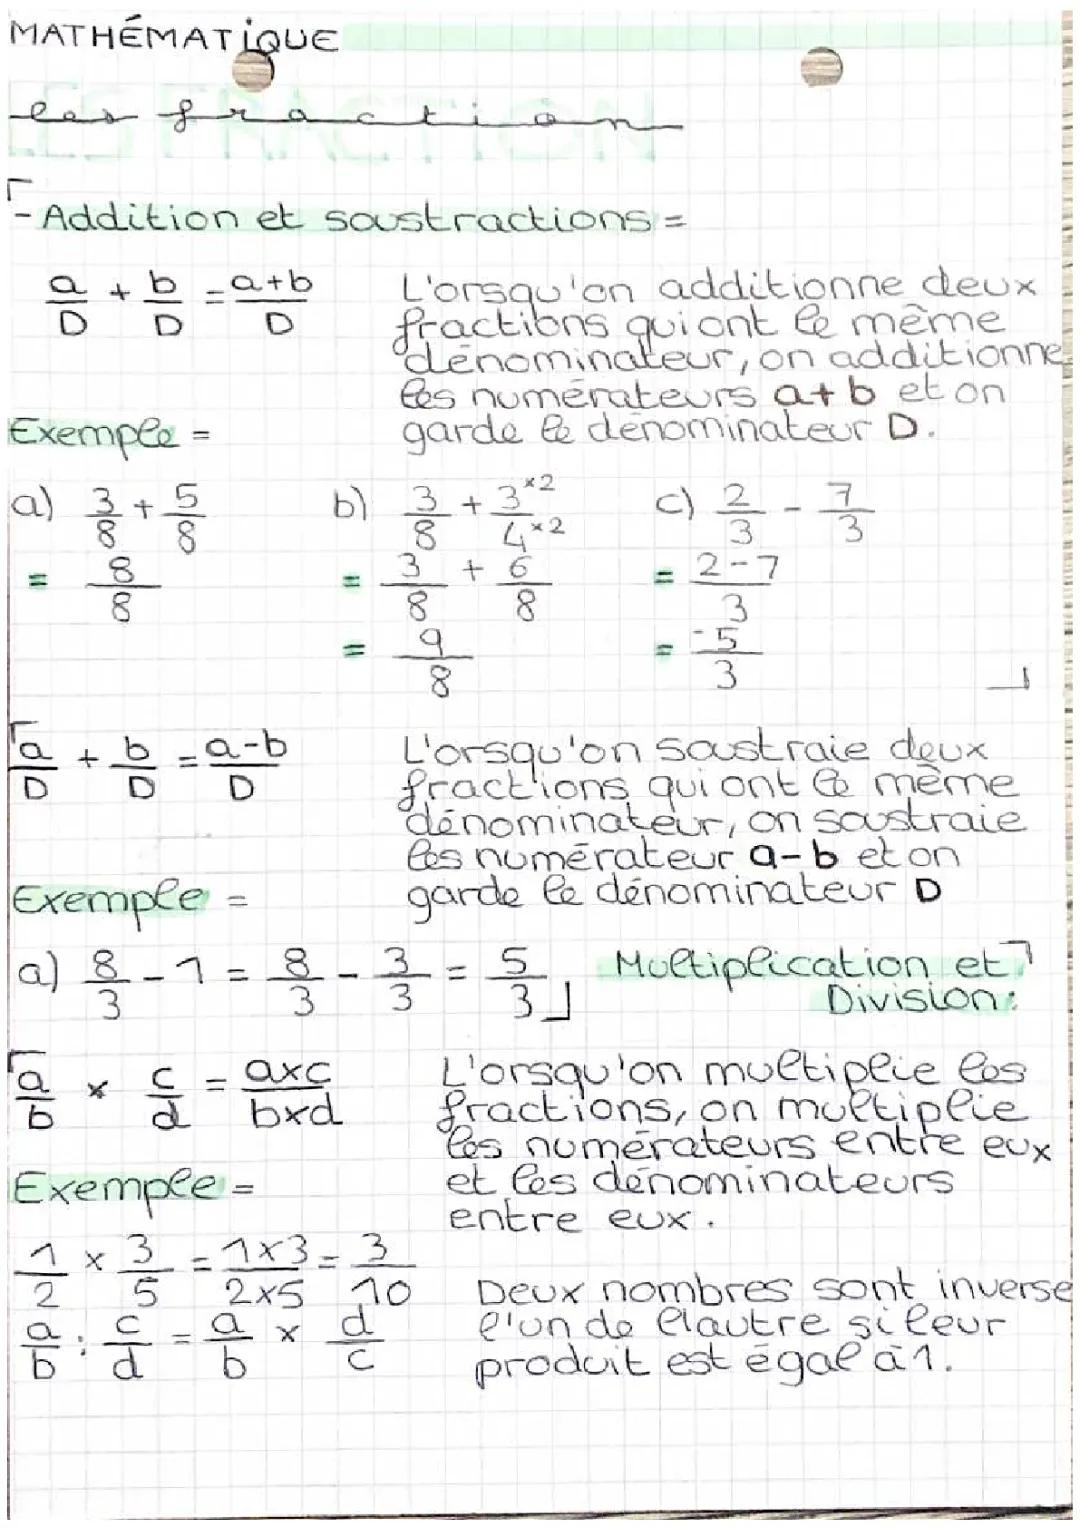 MATHÉMATIQUE
les fraction
LES FRACTION
- Addition et soustractions =
a/D + b/D = a+b/D
L'orsqu'on additionne deux
fractions qui ont le même
dénominateur, on additionne
les numérateurs a+b et on
garde le dénominateur D.
Exemple =
a) 3/8 + 5/8
= 8/8
b) 3/8 + 3×2/4×2
= 3/8 + 6/8
= 9/8
c) 2/3 - 7/3
= 2-7/3
= -5/3
a/D + b/D = a-b/D
L'orsqu'on soustraie deux
fractions qui ont le même
dénominateur, on soustraie
les numérateur a-b et on
garde le dénominateur D
Exemple =
a) 8/3 - 1 = 8/3 - 3/3 = 5/3
Multiplication et
Division:
a/b × c/d = axc/bxd
L'orsqu'on multiplie les
fractions, on multiplie
les numérateurs entre eux
et les dénominateurs
entre eux.
Exemple =
1/2 × 3/5 = 1×3/2×5 = 3/10
a/b : c/d = a/b × d/c
Deux nombres sont inverse
l'un de l'autre si leur
produit est égal à 1.